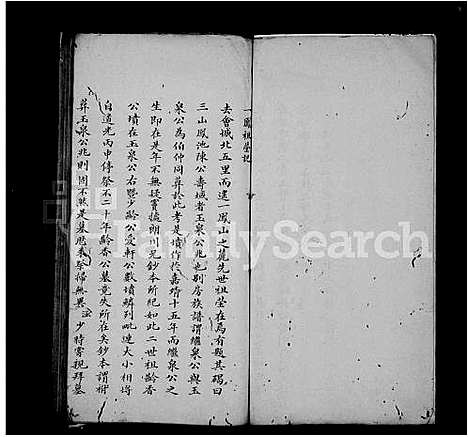 一鳳祖塋記
去會城北五里而遠一鳳山之麓先世祖塋在焉有題其碣曰
三山鳳池陳公壽域者玉泉公兆也别房族譜謂繼泉公與玉
泉公為伯仲同葬於此考是墳作於嘉靖十五年而繼泉公之
生即在是年不無疑竇據朗川兄鈔本所紀如此二世祖齡香
公墳在玉泉公右暨少齡公愛軒公數墳鱗列毗連大小相埒
自道光丙申停祭不二十年齡香公墓竟失所在矣鈔本謂祔
葬玉泉公兆則固不然是墓歷春祭掃無異 少時霧親拜墓
FamilySearch